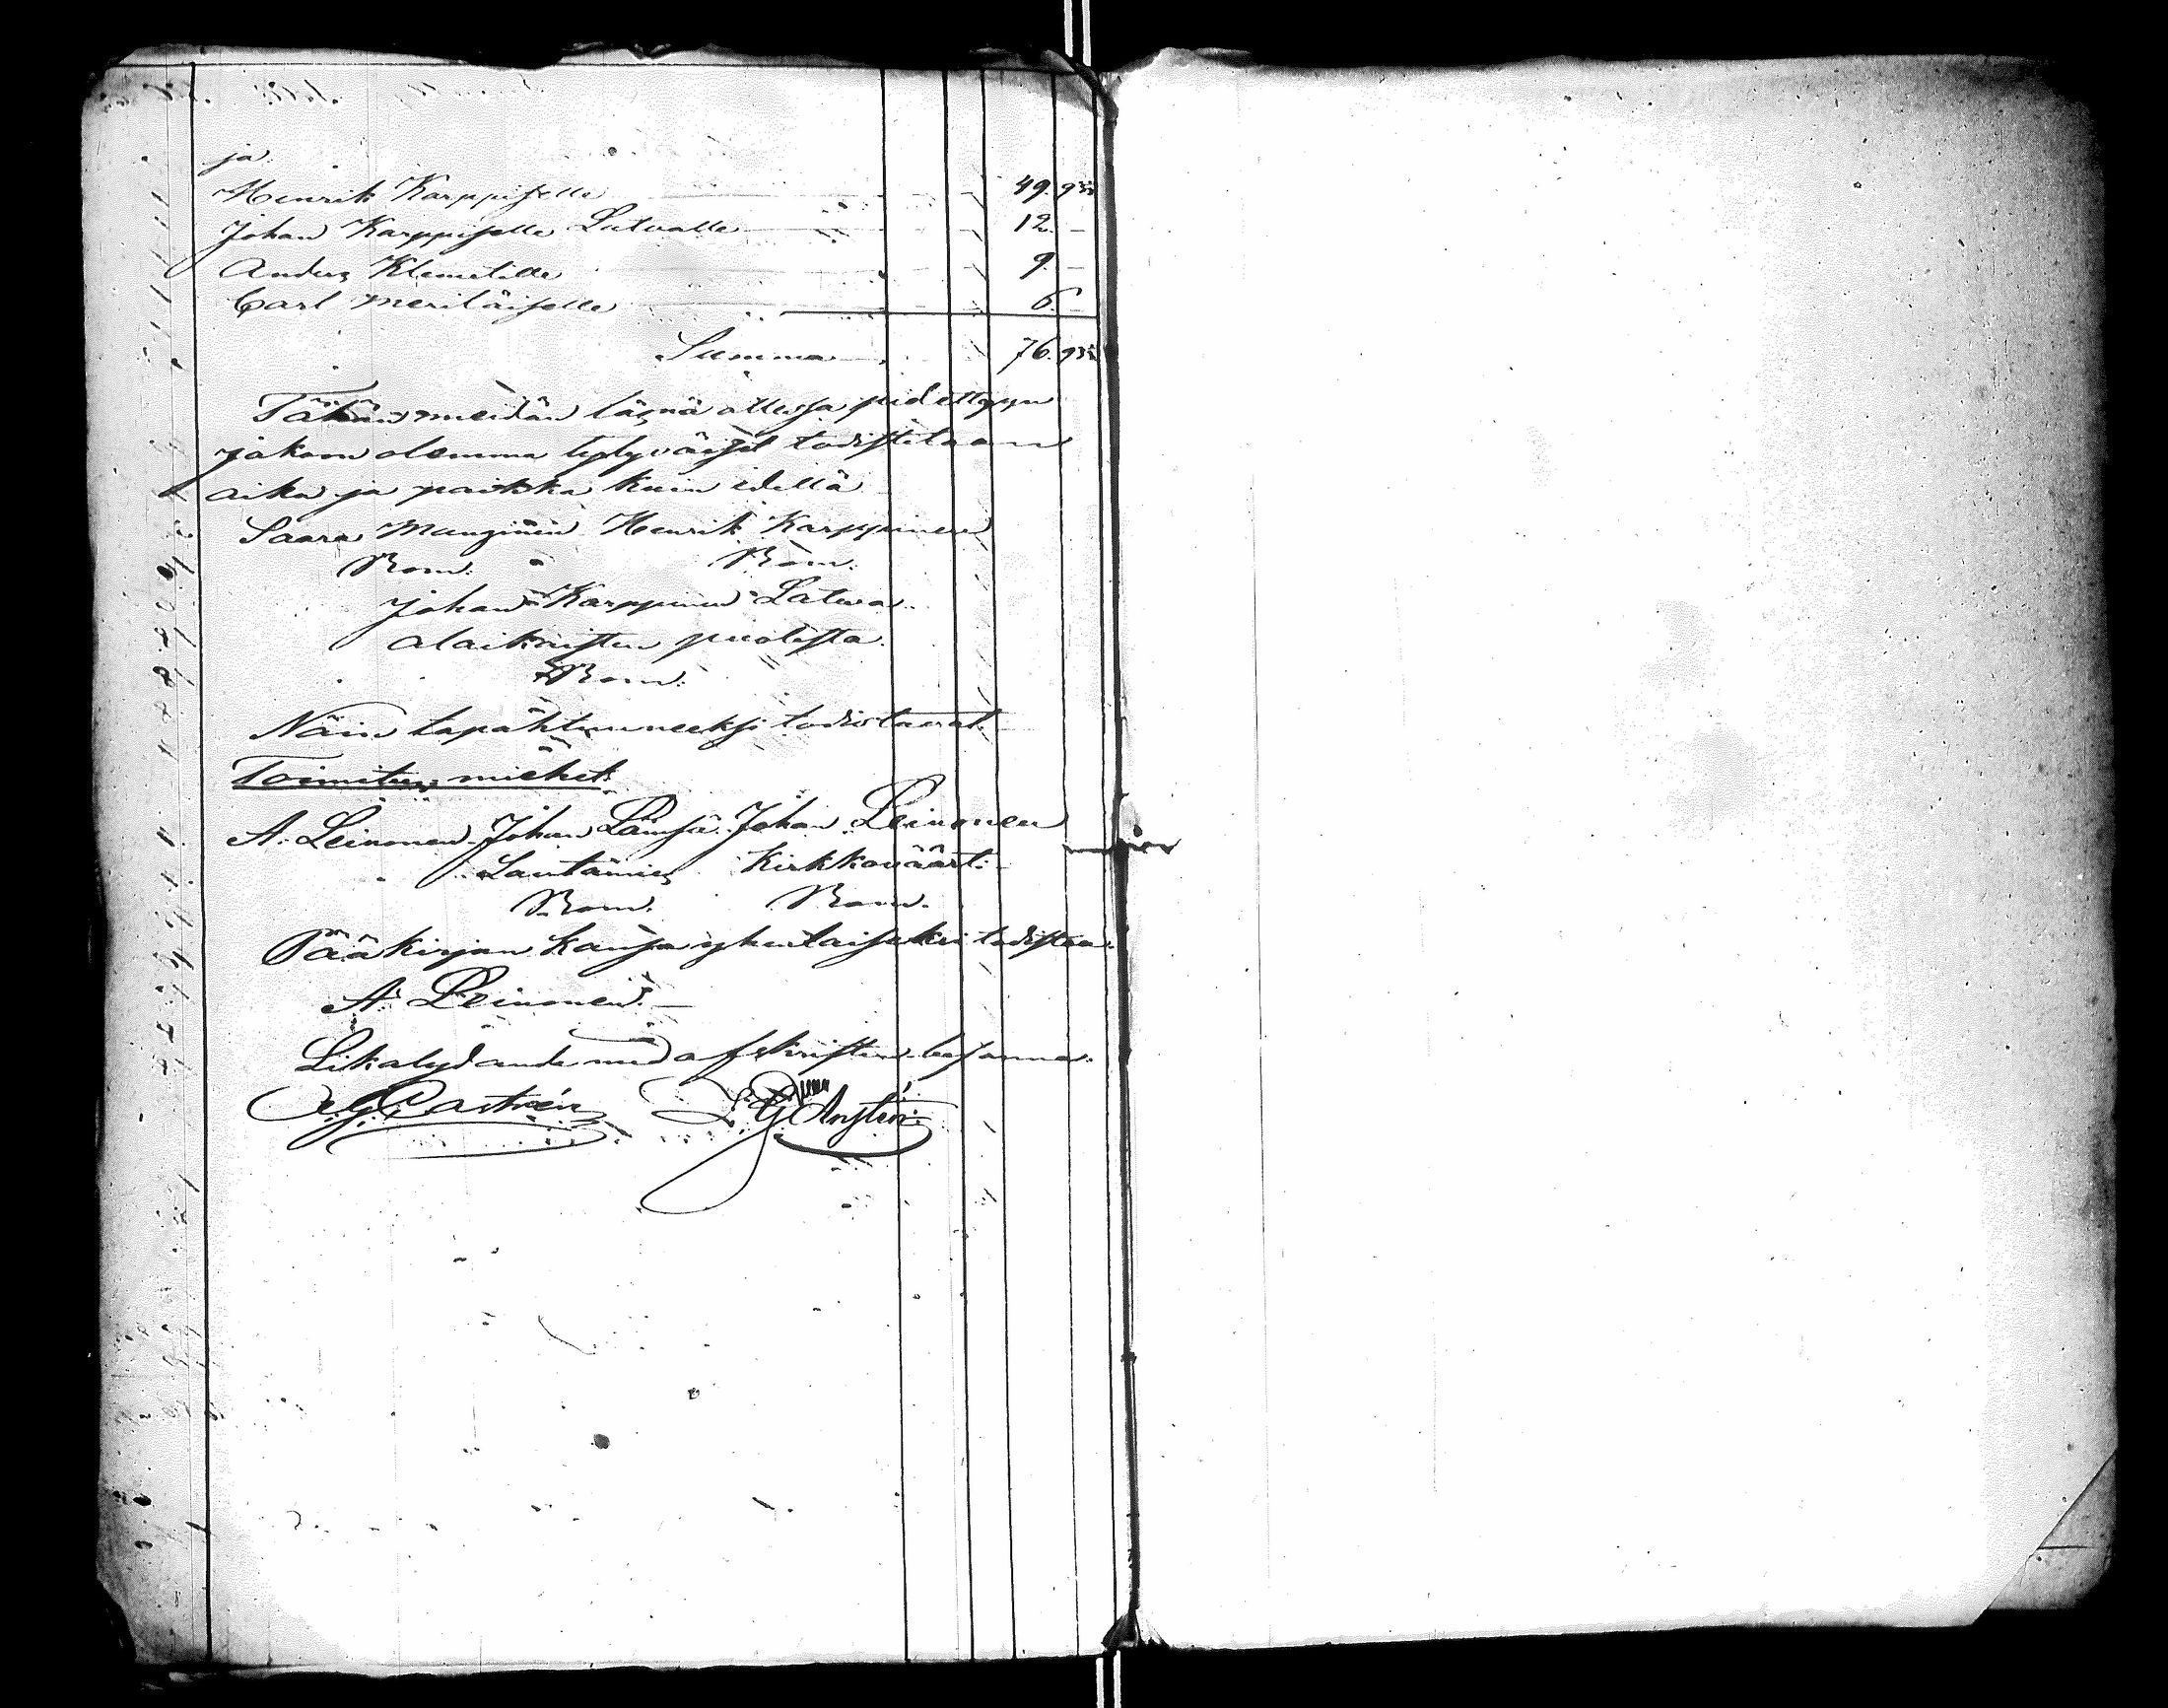 ja
Henrik Karppiselle 49. 93½
Johan Karppiselle Latvalle 12. –
Anders Klemetille 9. –
Carl Meriläiselle 6. –
Summa 76. 93½
Tähän meidän läsnä ollessa pidettyyn
jakoon olemma tyytyväiset todistetaan
aika ja paikka kuin edellä
Saara Manginen Henrik Karppinen
Bom. Bom.
Johan Karppinen Latva
alaikäisten puolesta.
Bom.
Näin tapahtuneeksi todistavat.
Toimitus miehet:
A. Leinonen Johan Lämsä Johan Leinonen
Lautamies Kirkkoväärti
Bom. Bom.
Pääkirjan kanssa yhenlaiseksi todistaa.
A. Leinonen.
Likalydande med afskriften besanna.
Castrén